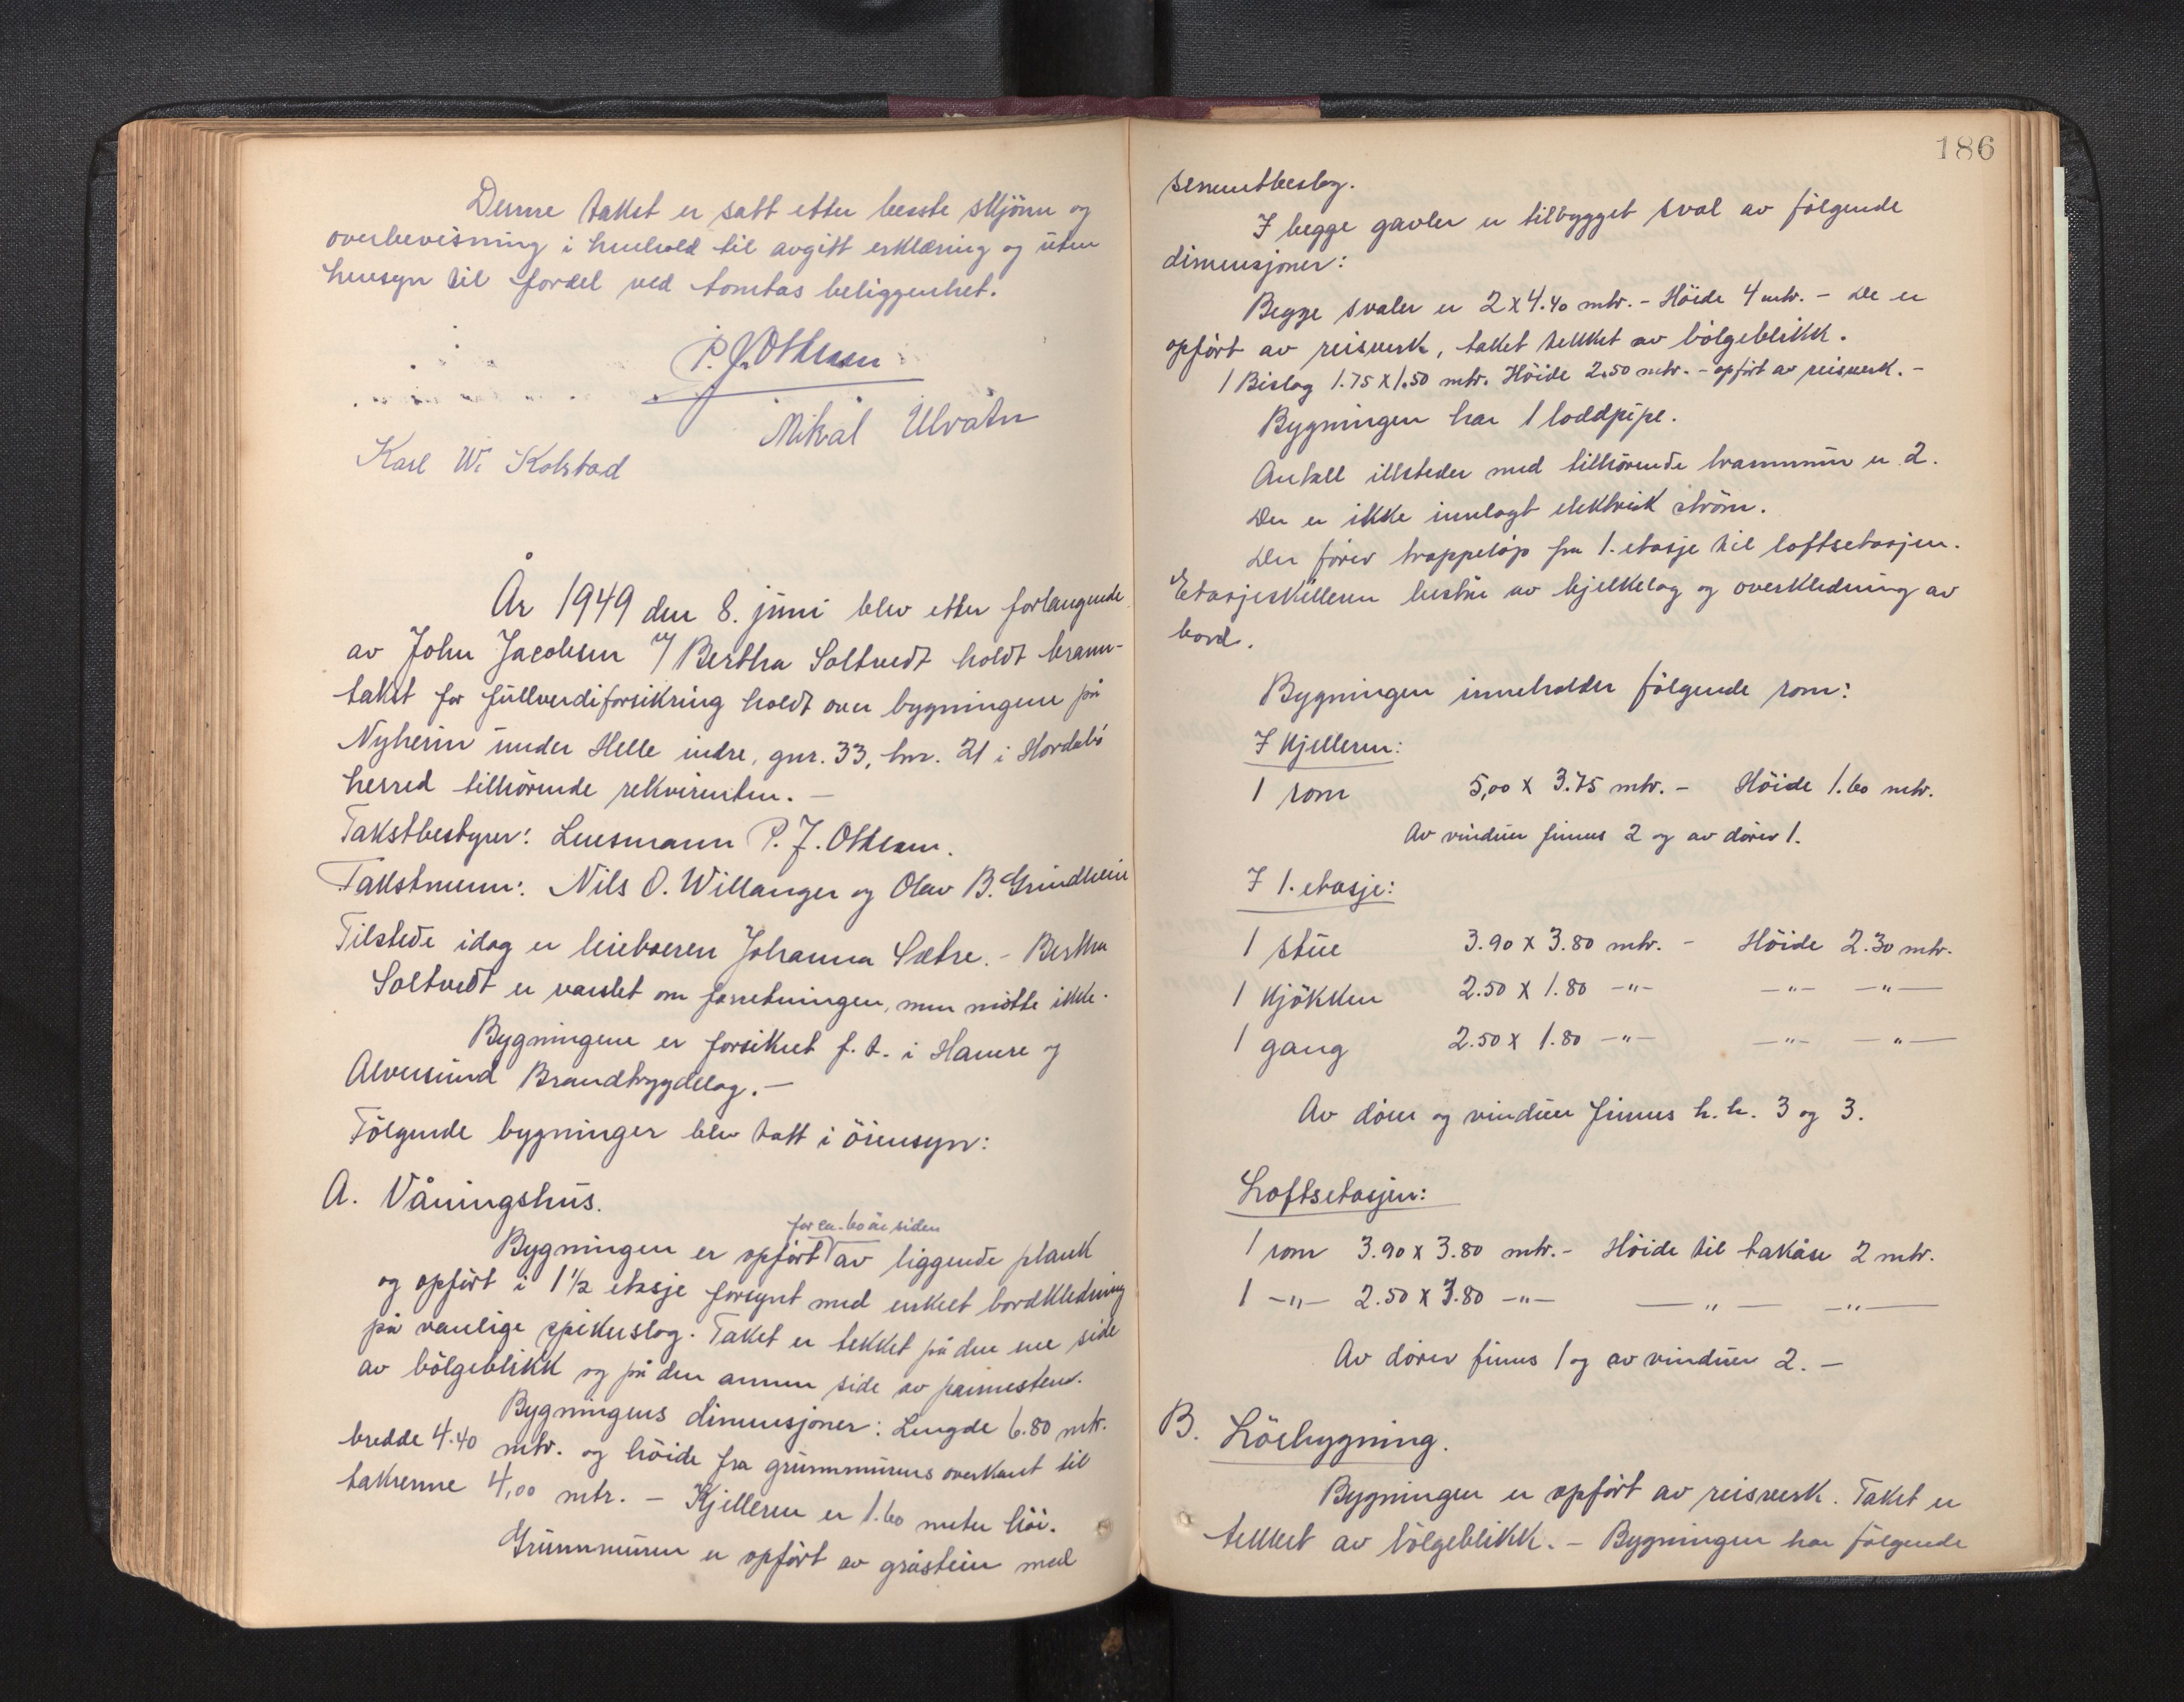 Denne takst er satt etter beste skjönn og
overbevisning i henhold til avgitt erklæring og uten
hensyn til fordel ved tomtas beliggenhet.
P. J. Othesen
Mikal Ulvatn
Karl W. Kolstad
År 1949 den 8. juni blev etter forlangende
av John Jacobsen Bertha Soltvedt holdt brann-
takst for fullverdiforsikring holdt over bygningene på
Nyheim under Helle indre, gnr. 33, bnr. 21 i Hordabö
herred tilhörende rekvirenten. –
Takstbestyrer: Lensmann P. J. Othesen.
Takstmenn: Nils O. Willanger og Olav B. Grindheim
Tilstede idag er leieboeren Johanna Sætre. – Bertha
Soltvedt er varslet om forretningen, men mötte ikke.
Bygningene er forsikret f. t. i Hamre og
Alversund Brandbygdelag. –
Fölgende bygninger blev tatt i öiensyn:
A. Våningshus.
for ca. 60 år siden
Bygningen er opfört av liggende plank
og opfört i 1 ½ etasje forsynt med enkelt bordkledning
på vanlige spikerslag. Taket er tekket på den ene side
av bölgeblikk og på den annen side av pannesten.
Bygningens dimensjoner: Lengde 6.80 mtr.
bredde 4.40 mtr. og höide fra grunnmurens overkant til
takrenne 4,00 mtr. – Kjelleren er 1.60 meter höi.
Grunnmuren er opfört av gråstein med
186
sementbeslag.
I begge gavler er tilbygget sval av fölgende
dimensjoner:
Begge svaler er 2 x 4.40 mtr. – Höide 4 mtr. – De er
opfört av reisverk, taket tekket av bölgeblikk.
1 Bislag 1.75 x 1.50 mtr. Höide 2.50 mtr. – opfört av reisverk. –
Bygningen har 1 loddpipe.
Antall illsteder med tilhörende brannmur er 2.
Der er ikke innlagt elektrisk ström.
Der förer trappelöp fra 1. etasje til loftsetasjen.
Etasjeskilleren består av bjelkelag og overkledning av
bord.
Bygningen inneholder fölgende rom:
I kjelleren:
1 rom 5,00 x 3.75 mtr. – Höide 1.60 mtr.
Av vinduer finnes 2 og av dörer 1.
I 1. etasje:
1 stue 3.90 x 3.80 mtr. – Höide 2.30 mtr.
1 kjökken 2.50 x 1.80 –"– –"– –"–
1 gang 2.50 x 1.80 –"– –"– –"–
Av dörer og vinduer finnes h. h. 3 og 3.
Loftsetasjen:
1 rom 3.90 x 3.80 mtr. – Höide til takåse 2 mtr.
1 –"– 2.50 x 3.80 –"– –"– –"–
Av dörer finnes 1 og av vinduer 2. –
B. Löebygning.
Bygningen er opfört av reisverk. Taket er
tekket av bölgeblikk. – Bygningen har fölgende